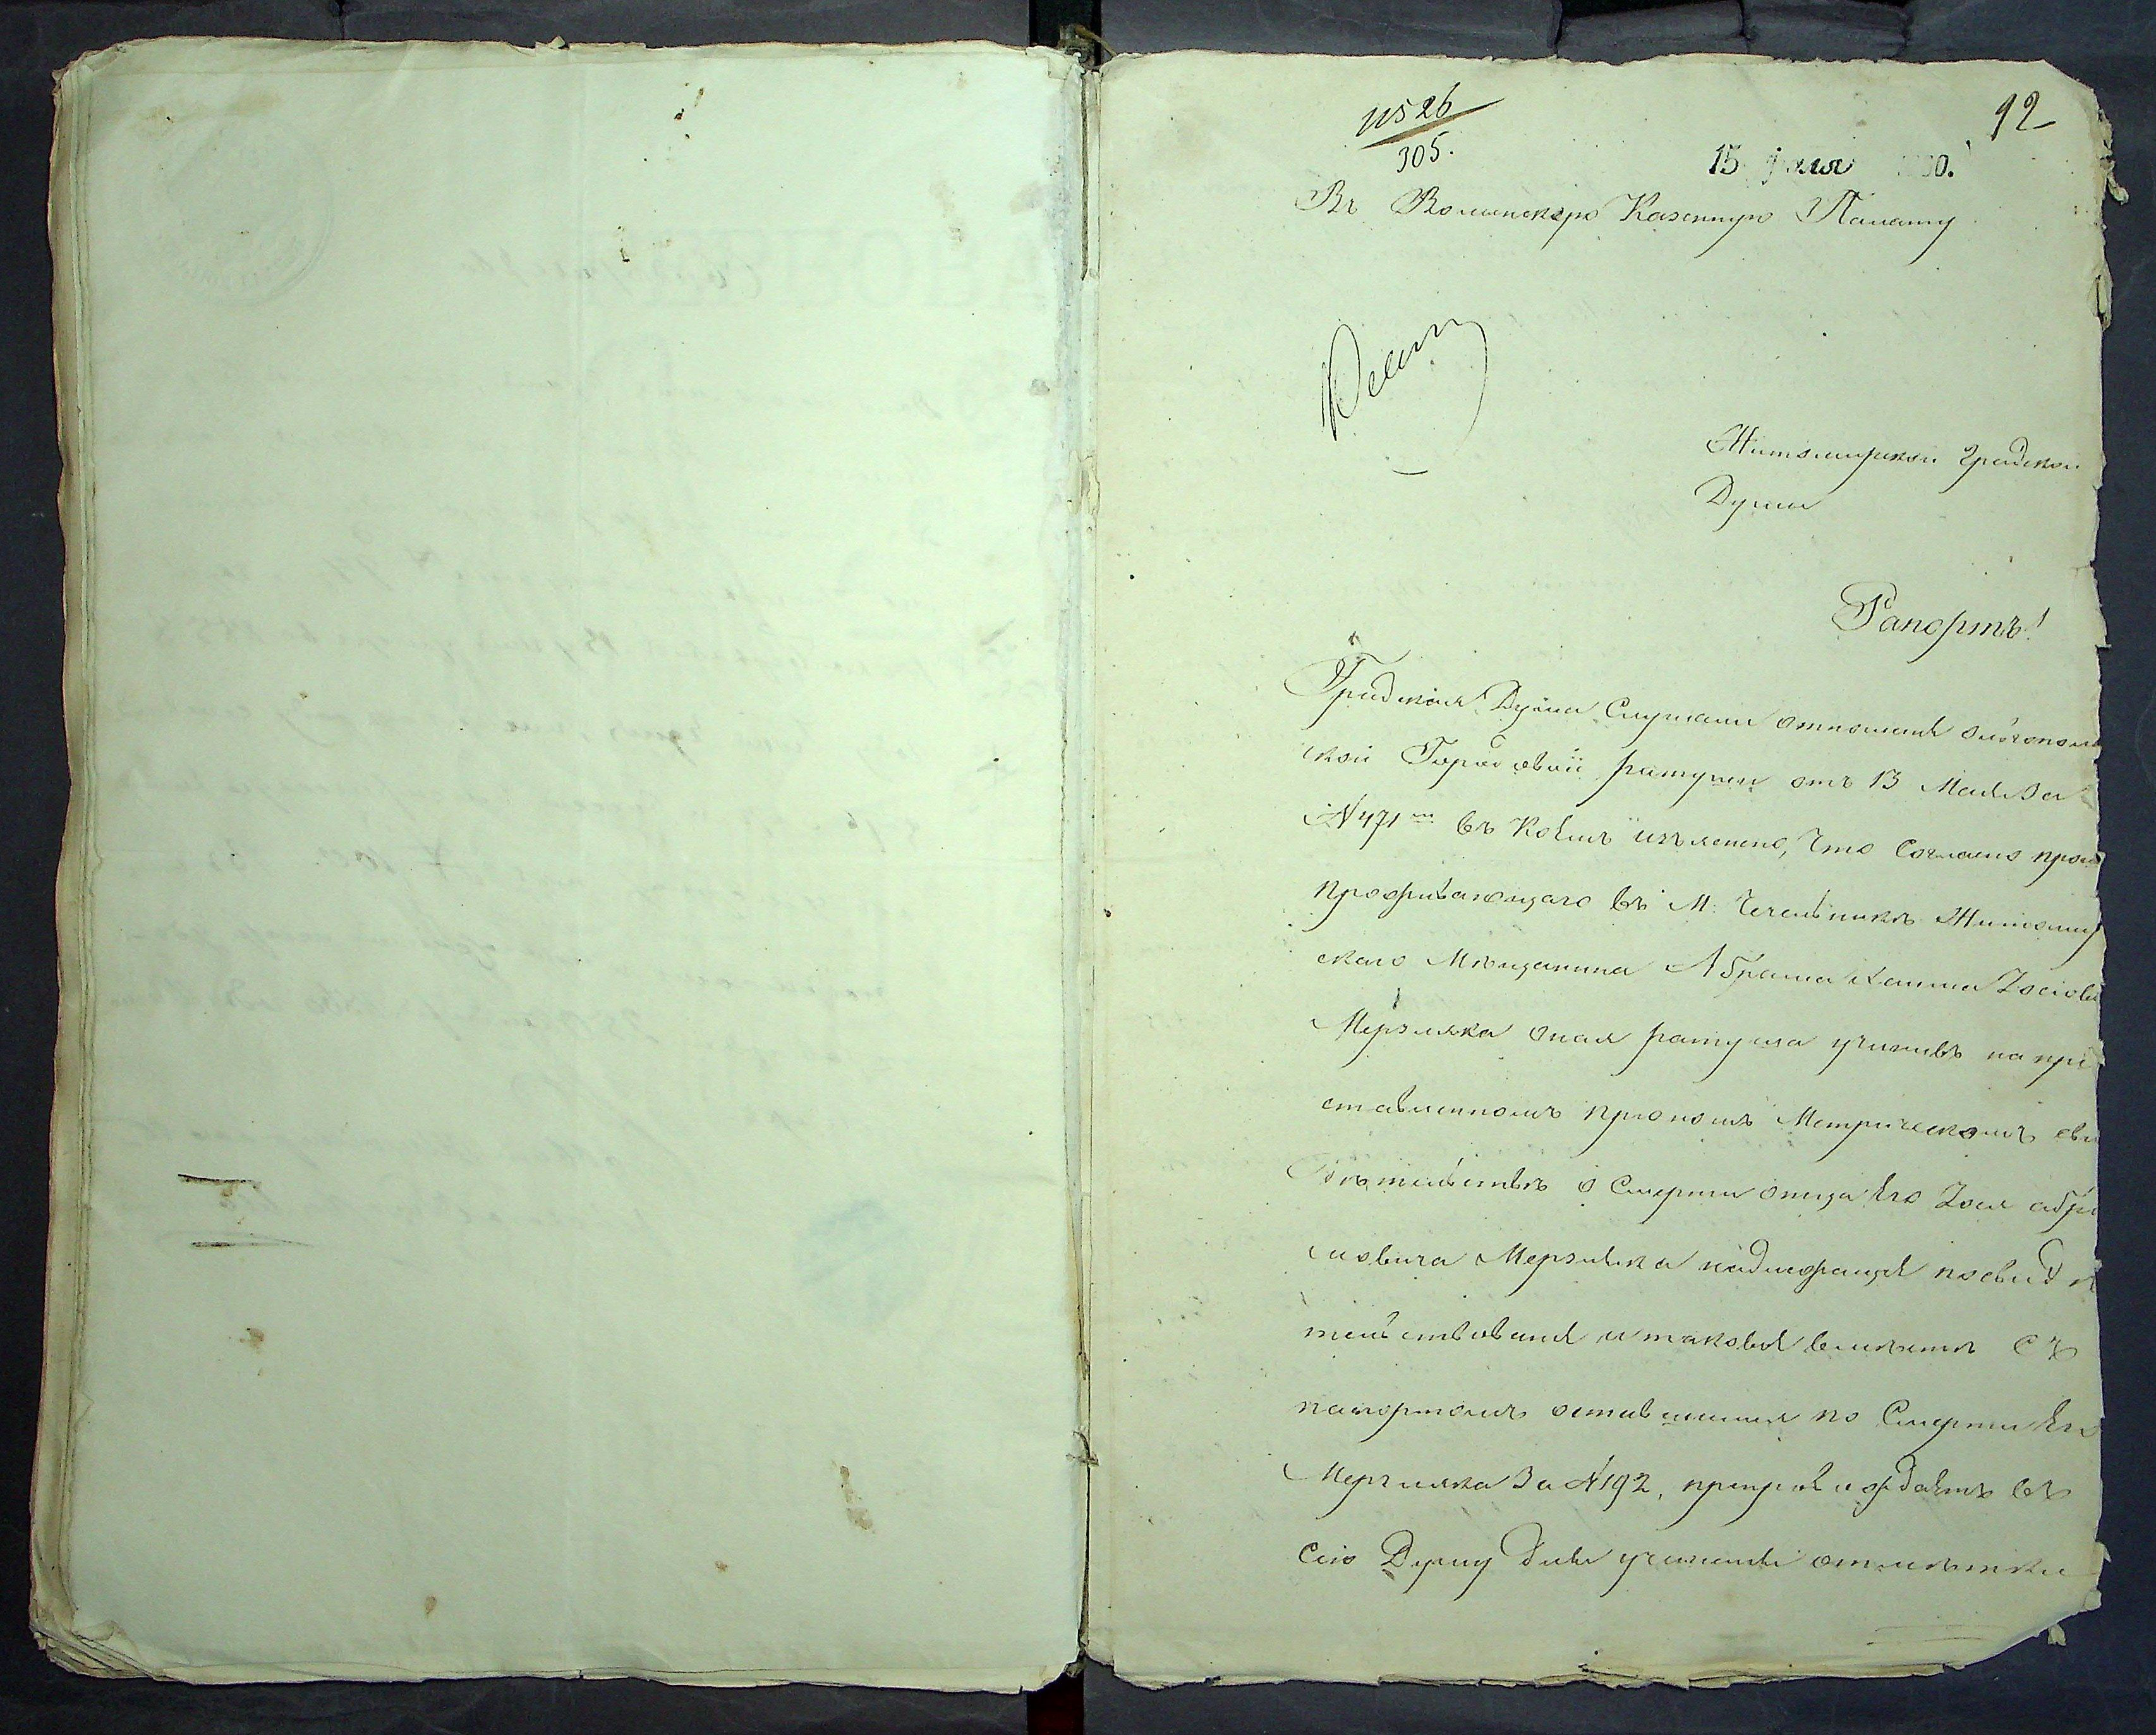 11526
305.
92
15 Юля
Въ Волынскую Казенную Палату
Житомирской Градской
Думы
Рапортъ!
Градская Дума Слушали отношение Ольгополь
ской Городовой ратуши отъ 13 Мая За
№ 471м въ коемъ изъяснено, что Согласно прозб
проживающаго въ М: Чечельникъ Житомир
скаго Мещанина Абрама Хаима Іосіов
Мерзляка оная ратуша учинивъ на пре
ставленномъ прономъ Метрическомъ сви
детельстве о Смерти отца его Іося абра
мовича Мерзляка надлежаще посвиде
тельствование и таковое вместе съ
паспортомъ оставшимся по Смерти его
Мерзляка За № 192, препровождаетъ въ
Сию Думу для учинения отметки